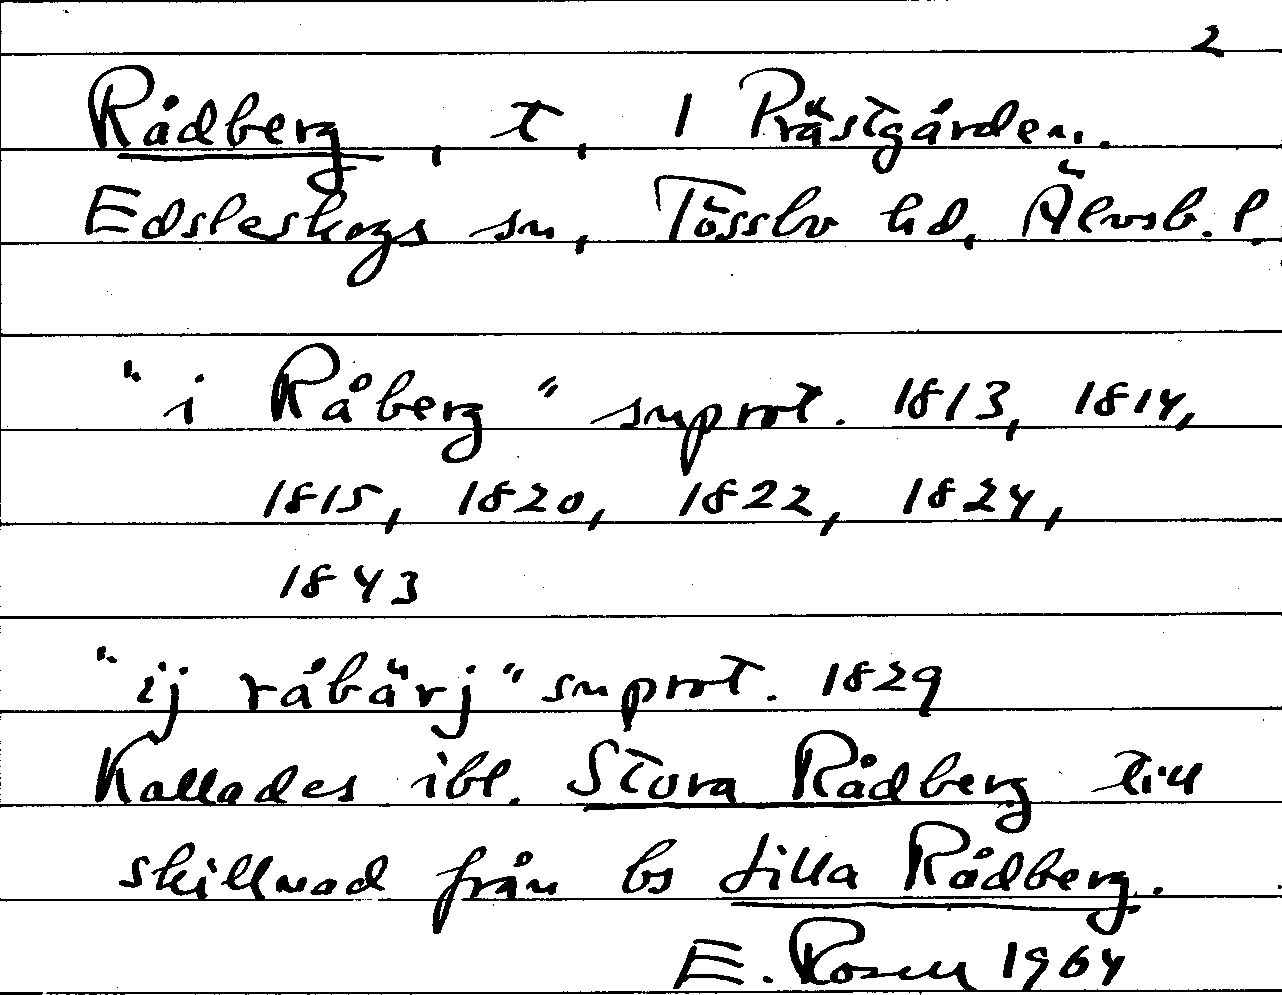 2
Rådberg, t, 1 Prästgården.
Edsleskogs sn, Tössbo hd, Älvsb. l.
"i Råberg" snprot. 1813, 1814,
1815, 1820, 1822, 1824,
1843
"ij råbärj" snprot. 1829
Kallades ibl. Stora Rådberg till
skillnad från bs Lilla Rådberg.
E. Rosell 1964